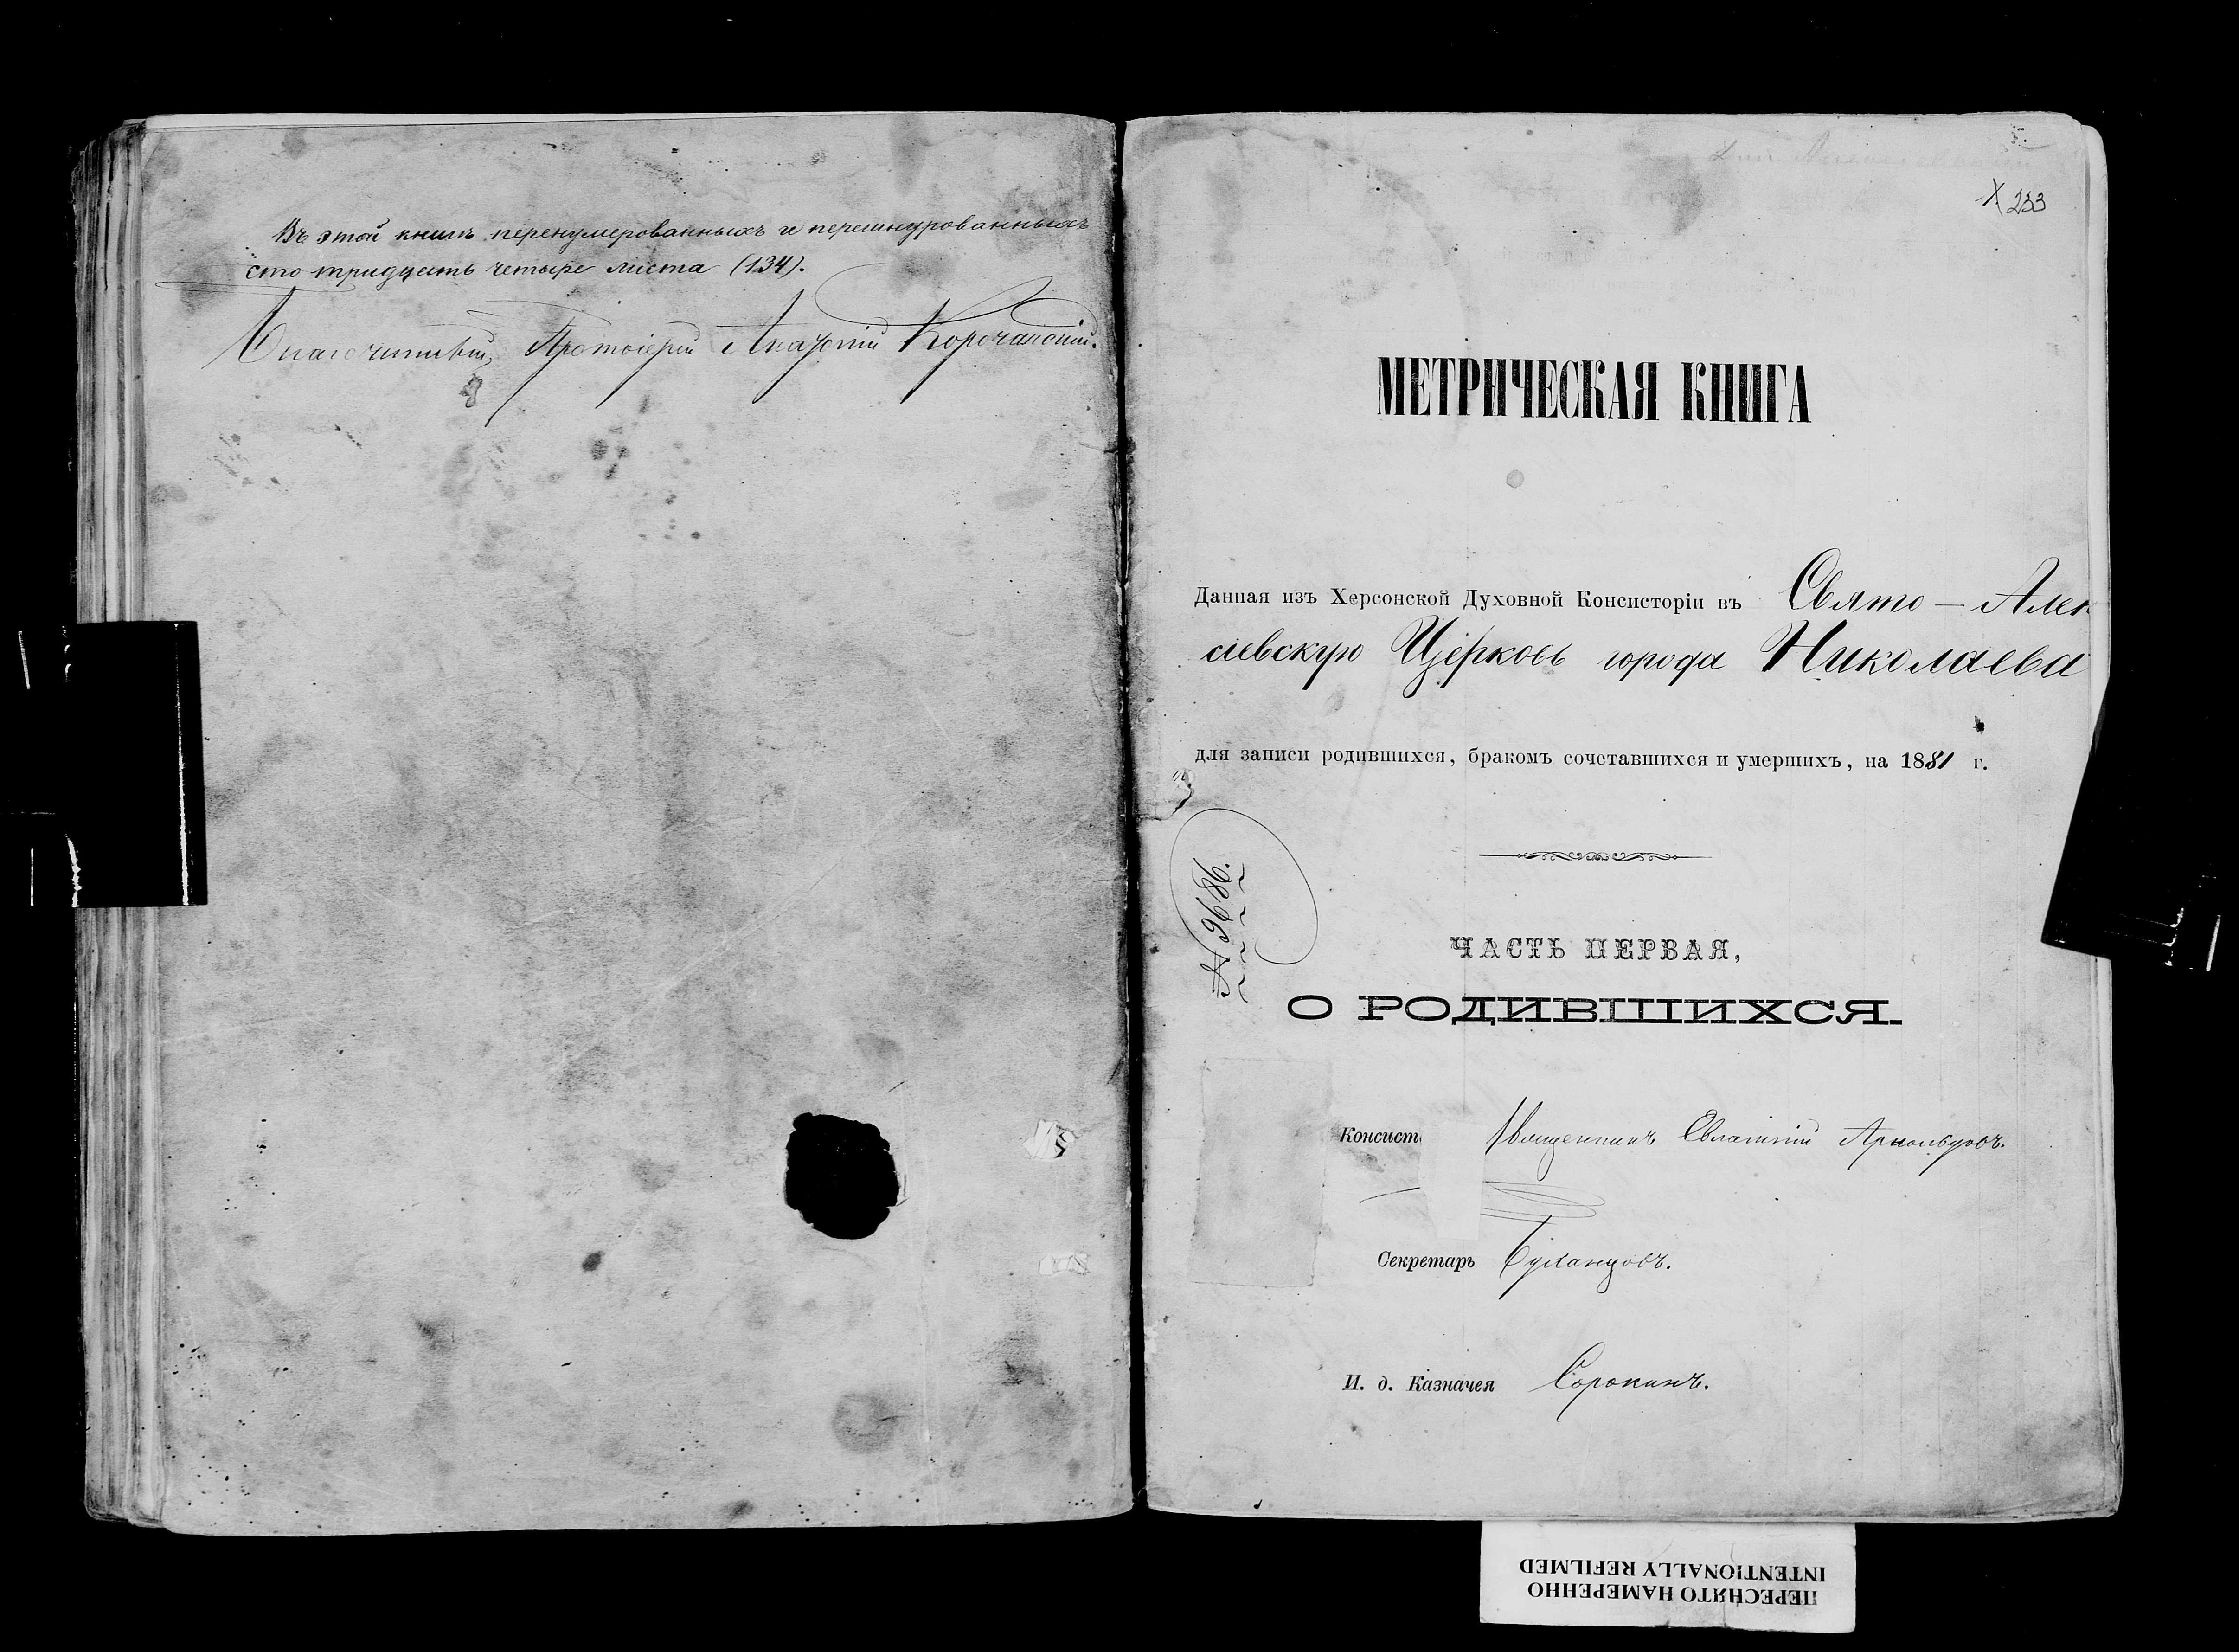 Въ этой книгѣ перенумерованныхъ и перешнурованныхъ
сто тридцать четыре листа (134).
Благочинный, Протоіерей Корочанскій.
233
МЕТРИЧЕСКАЯ КНИГА
Данная изъ Херсонской Духовной Консисторіи въ Свято-Алек
сіевскую Церковь города Николаева
для записи родившихся, бракомъ сочетавшихся и умершихъ, на 1881 г.
№ 9686.
ЧАСТЬ ПЕРВАЯ,
О РОДИВШИХСЯ.
Консист Священникъ Евлампій Арнольдовъ.
Секретарь
И. д. Казначея Сорокинъ.
ПЕРЕСНЯТО НАМЕРЕННО
INTENTIONALLY REFILMED